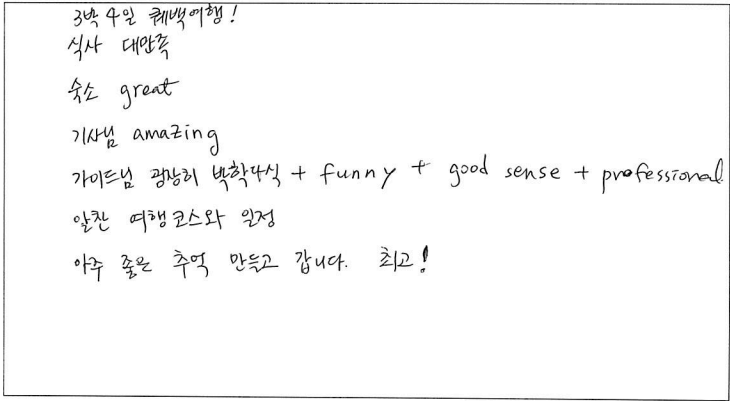 3박 4일 퀘백여행!
식사 대만족
숙소 great
기사님 amazing
가이드님 굉장히 박학다식 + funny + good sense + professional
알찬 여행코스와 일정
아주 좋은 추억 만들고 갑니다. 최고!